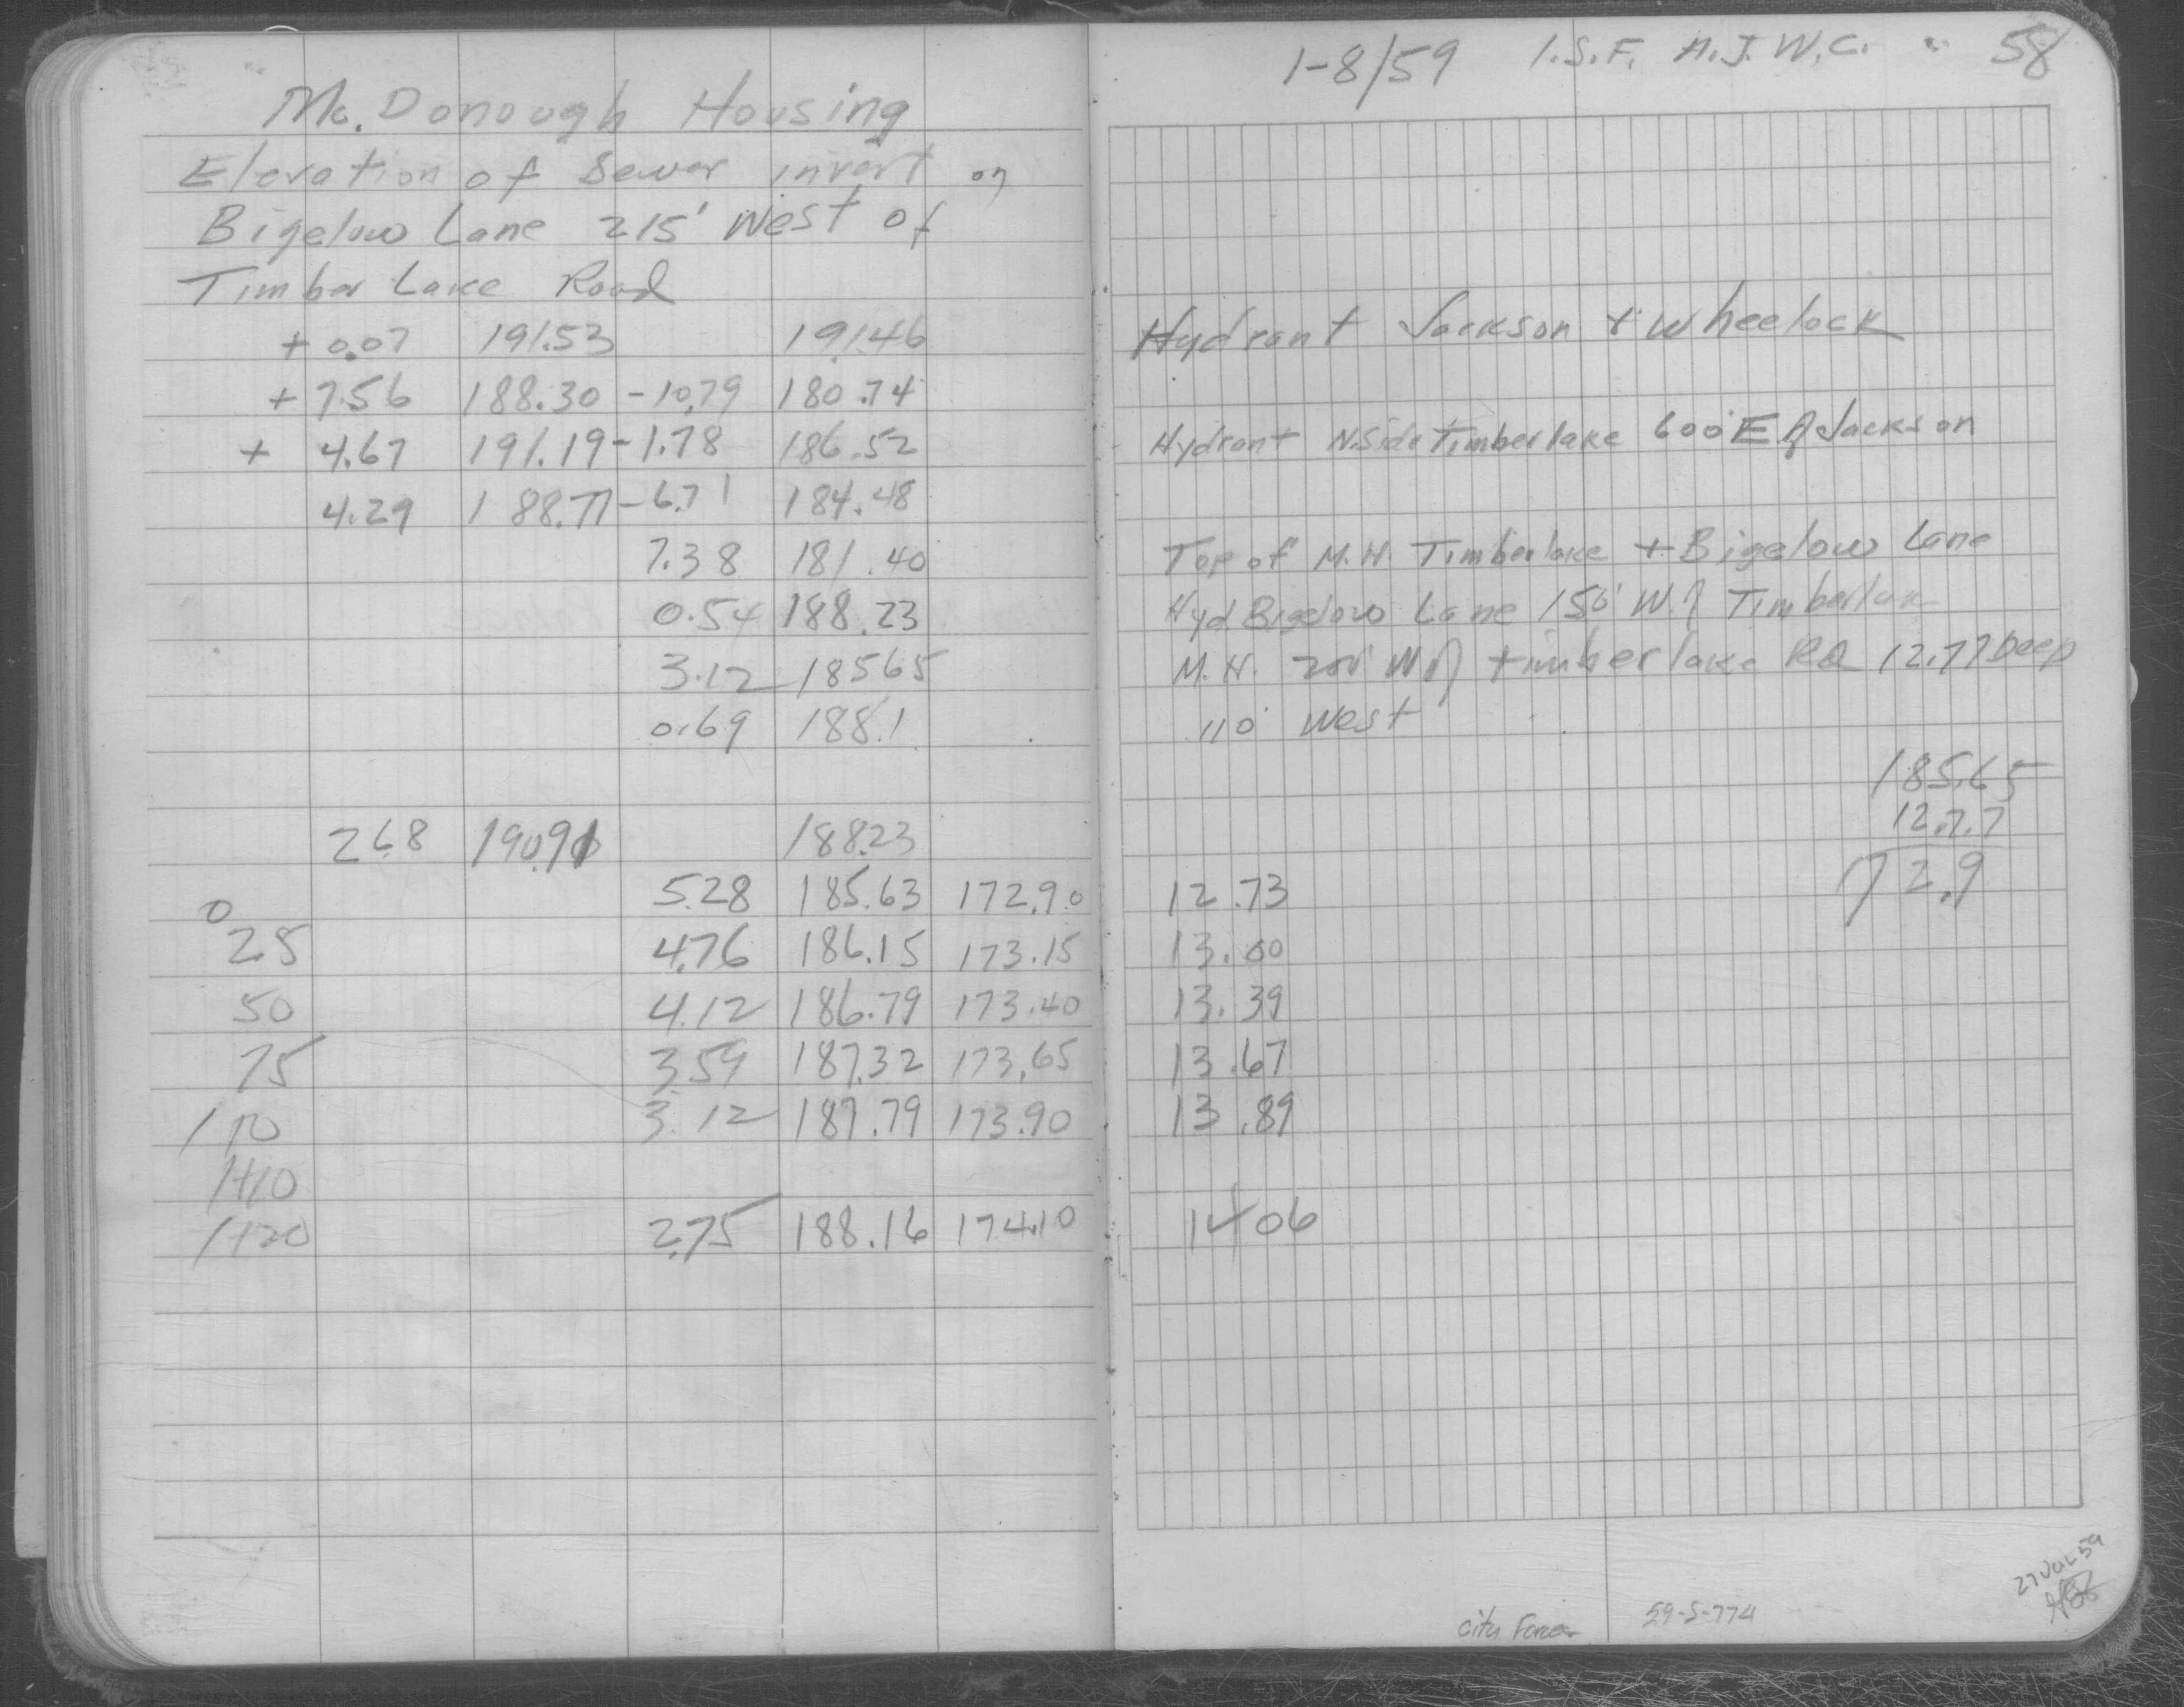 Mc. Donough Housing
Elevation of Sewer invert on
Bigelow Lane 215' West of
Timber Lake Road
+ 0.07 191.53 191.46
+ 7.56 188.30 - 10.79 180.74
+ 4.67 191.19 - 1.78 186.52
4.29 188.77 - 6.71 184.48
7.38 181.40
0.54 188.23
3.12 185 65
0.69 188.1
2.68 190.91 188.23
0 5.28 185.63 172.90
25 4.76 186.15 173.15
50 4.12 186.79 173.40
75 3.59 187.32 173.65
100 3.12 187.79 173.90
1+10
1+20 2.75 188.16 174.10
1-8/59 I.S.F. A.J. W.C. 58
Hydrant Jackson + Wheelock
Hydrant N.Side Timberlake 600' E of Jackson
Top of M.H. Timberlake + Bigelow Lane
Hyd Bigelow Lane 150' W. of Timberlake
M.H. 200' W of timberlake Rd 12.77 Deep
110' West
185.65
12.7.7
172.9
12.73
13.00
13.39
13.67
13.89
14 06
City Forces 59-S-774
27 JUL 59